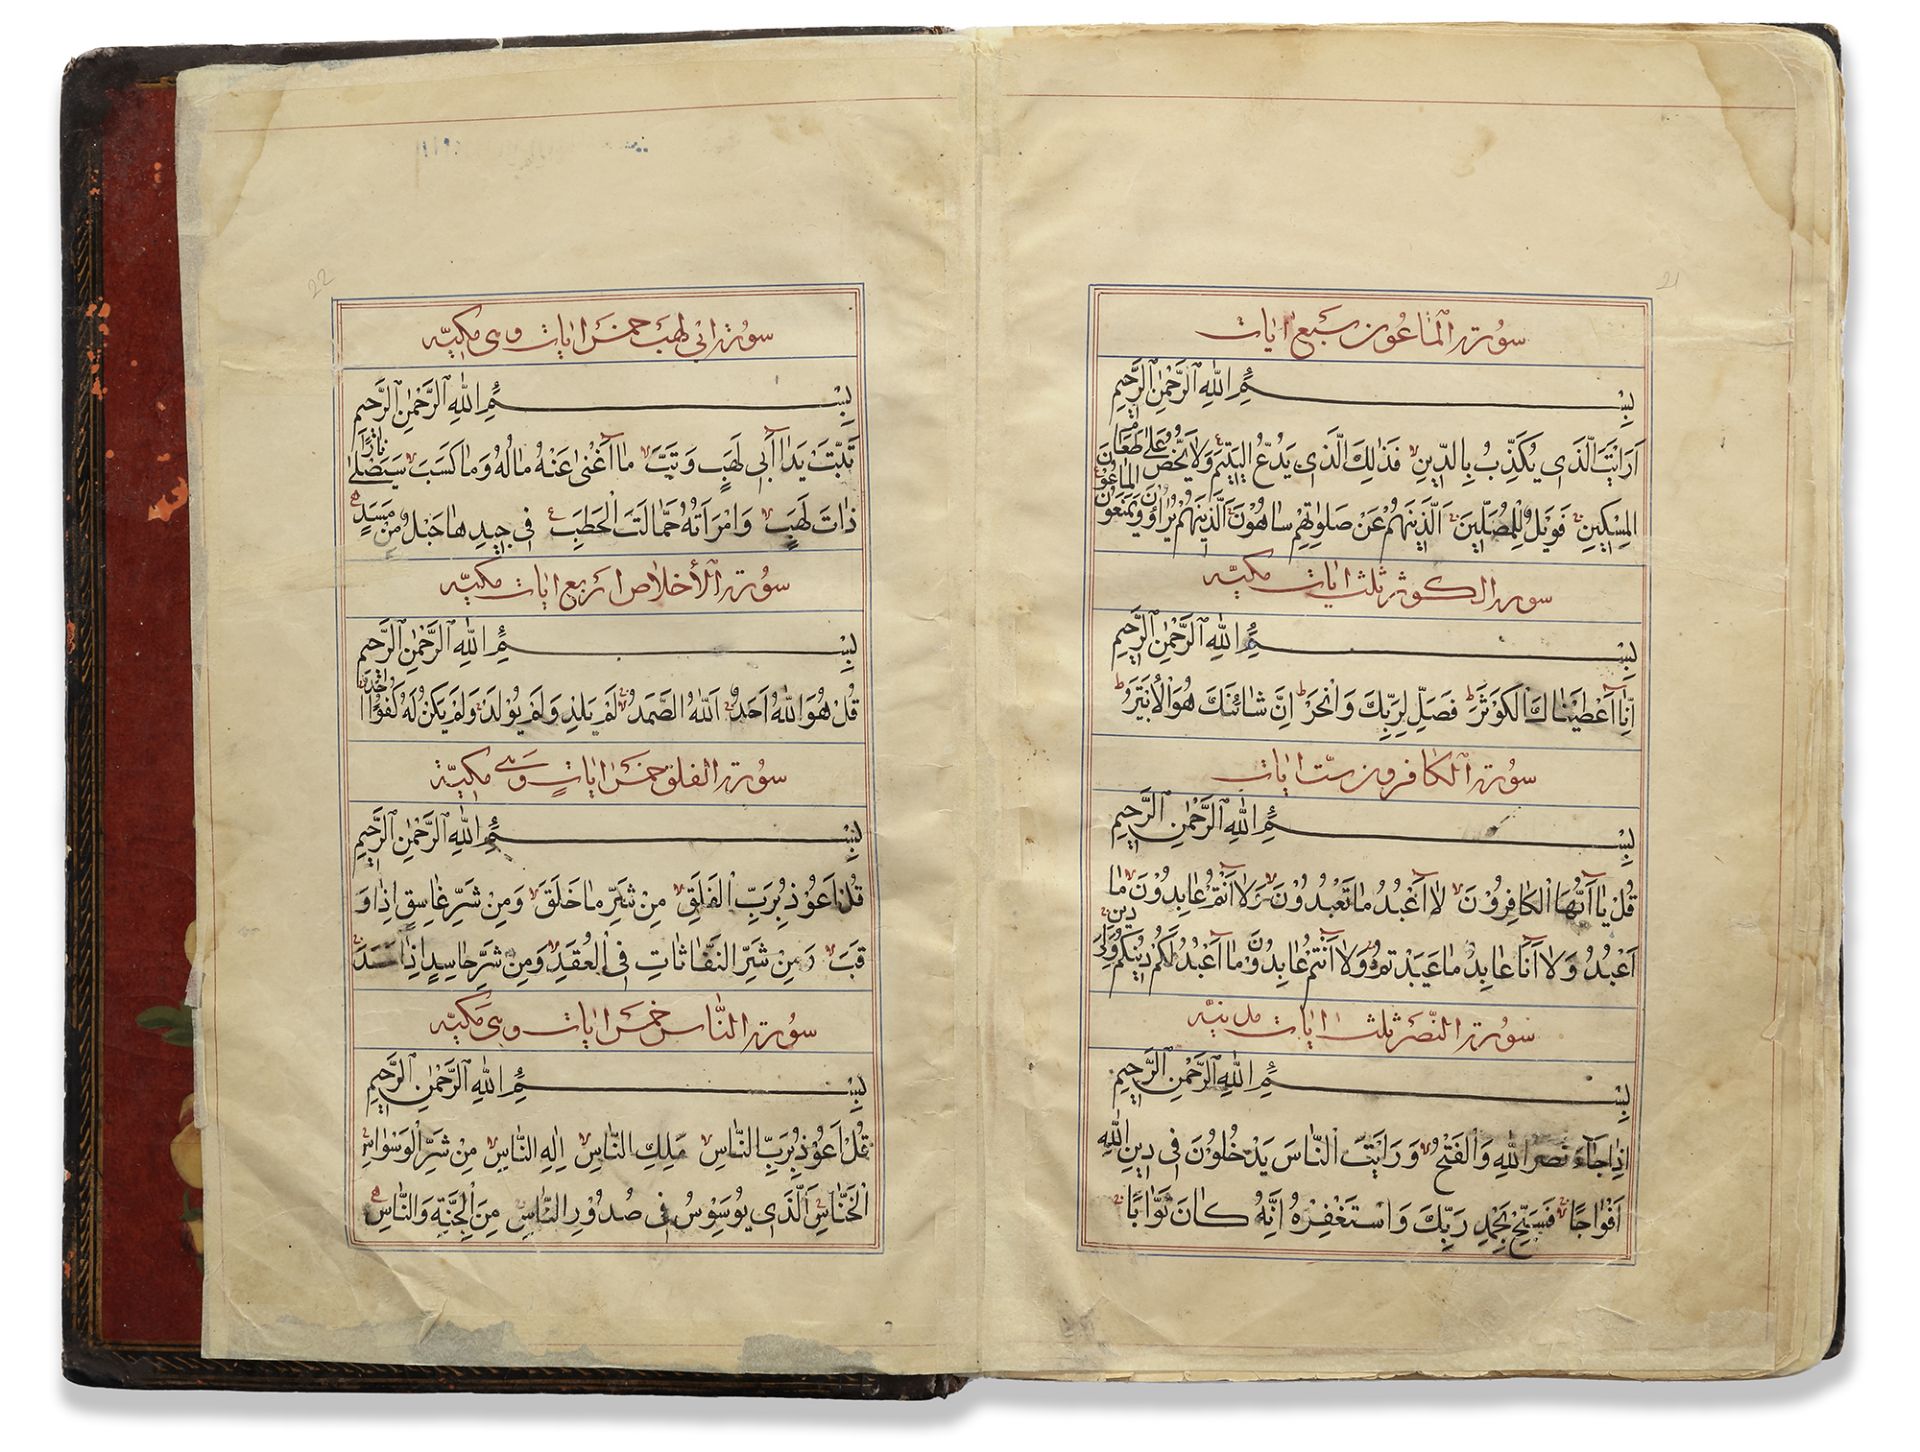 21
سورة الماعون سبع ايات
بِسْمِ اللّٰهِ الرَّحْمٰنِ الرَّحِيمِ
اَرَاَيْتَ الَّذِى يُكَذِّبُ بِالدِّينِ فَذٰلِكَ الَّذِى يَدُعُّ الْيَتِيمَ وَلَا يَحُضُّ عَلٰى طَعَامِ
الْمِسْكِينِ فَوَيْلٌ لِلْمُصَلِّينَ الَّذِينَ هُمْ عَنْ صَلٰوتِهِمْ سَاهُونَ الَّذِينَ هُمْ يُرَاؤُنَ وَيَمْنَعُونَ الْمَاعُونَ
سورة الكوثر ثلث ايات مكيّه
بِسْمِ اللّٰهِ الرَّحْمٰنِ الرَّحِيمِ
اِنَّا اَعْطَيْنَاكَ الْكَوْثَرَ فَصَلِّ لِرَبِّكَ وَانْحَرْ اِنَّ شَانِئَكَ هُوَ الْاَبْتَرُ
سورة الكافرون ست ايات
بِسْمِ اللّٰهِ الرَّحْمٰنِ الرَّحِيمِ
قُلْ يَا اَيُّهَا الْكَافِرُونَ لَا اَعْبُدُ مَا تَعْبُدُونَ وَلَا اَنْتُمْ عَابِدُونَ مَا
اَعْبُدُ وَلَا اَنَا عَابِدٌ مَا عَبَدْتُمْ وَلَا اَنْتُمْ عَابِدُونَ مَا اَعْبُدُ لَكُمْ دِينُكُمْ وَلِىَ دِينِ
سورة النصر ثلث ايات مدنيّه
بِسْمِ اللّٰهِ الرَّحْمٰنِ الرَّحِيمِ
اِذَا جَاءَ نَصْرُ اللّٰهِ وَالْفَتْحُ وَرَاَيْتَ النَّاسَ يَدْخُلُونَ فِى دِينِ اللّٰهِ
اَفْوَاجًا فَسَبِّحْ بِحَمْدِ رَبِّكَ وَاسْتَغْفِرْهُ اِنَّهُ كَانَ تَوَّابًا
22
سورة ابى لهب خمس ايات وهى مكيّه
بِسْمِ اللّٰهِ الرَّحْمٰنِ الرَّحِيمِ
تَبَّتْ يَدَا اَبِى لَهَبٍ وَتَبَّ مَا اَغْنٰى عَنْهُ مَالُهُ وَمَا كَسَبَ سَيَصْلٰى نَارًا
ذَاتَ لَهَبٍ وَامْرَاَتُهُ حَمَّالَتَ الْحَطَبِ فِى جِيدِهَا حَبْلٌ مِنْ مَسَدٍ
سورة الأخلاص اربع ايات مكيّه
بِسْمِ اللّٰهِ الرَّحْمٰنِ الرَّحِيمِ
قُلْ هُوَ اللّٰهُ اَحَدٌ اَللّٰهُ الصَّمَدُ لَمْ يَلِدْ وَلَمْ يُولَدْ وَلَمْ يَكُنْ لَهُ كُفُوًا اَحَدٌ
سورة الفلق خمس ايات وهى مكيّة
بِسْمِ اللّٰهِ الرَّحْمٰنِ الرَّحِيمِ
قُلْ اَعُوذُ بِرَبِّ الْفَلَقِ مِنْ شَرِّ مَا خَلَقَ وَمِنْ شَرِّ غَاسِقٍ اِذَا وَ
قَبَ وَمِنْ شَرِّ النَّفَّاثَاتِ فِى الْعُقَدِ وَمِنْ شَرِّ حَاسِدٍ اِذَا حَسَدَ
سورة النّاس خمس ايات وهى مكيّه
بِسْمِ اللّٰهِ الرَّحْمٰنِ الرَّحِيمِ
قُلْ اَعُوذُ بِرَبِّ النَّاسِ مَلِكِ النَّاسِ اِلٰهِ النَّاسِ مِنْ شَرِّ الْوَسْوَاسِ
الْخَنَّاسِ الَّذِى يُوَسْوِسُ فِى صُدُورِ النَّاسِ مِنَ الْجِنَّةِ وَالنَّاسِ